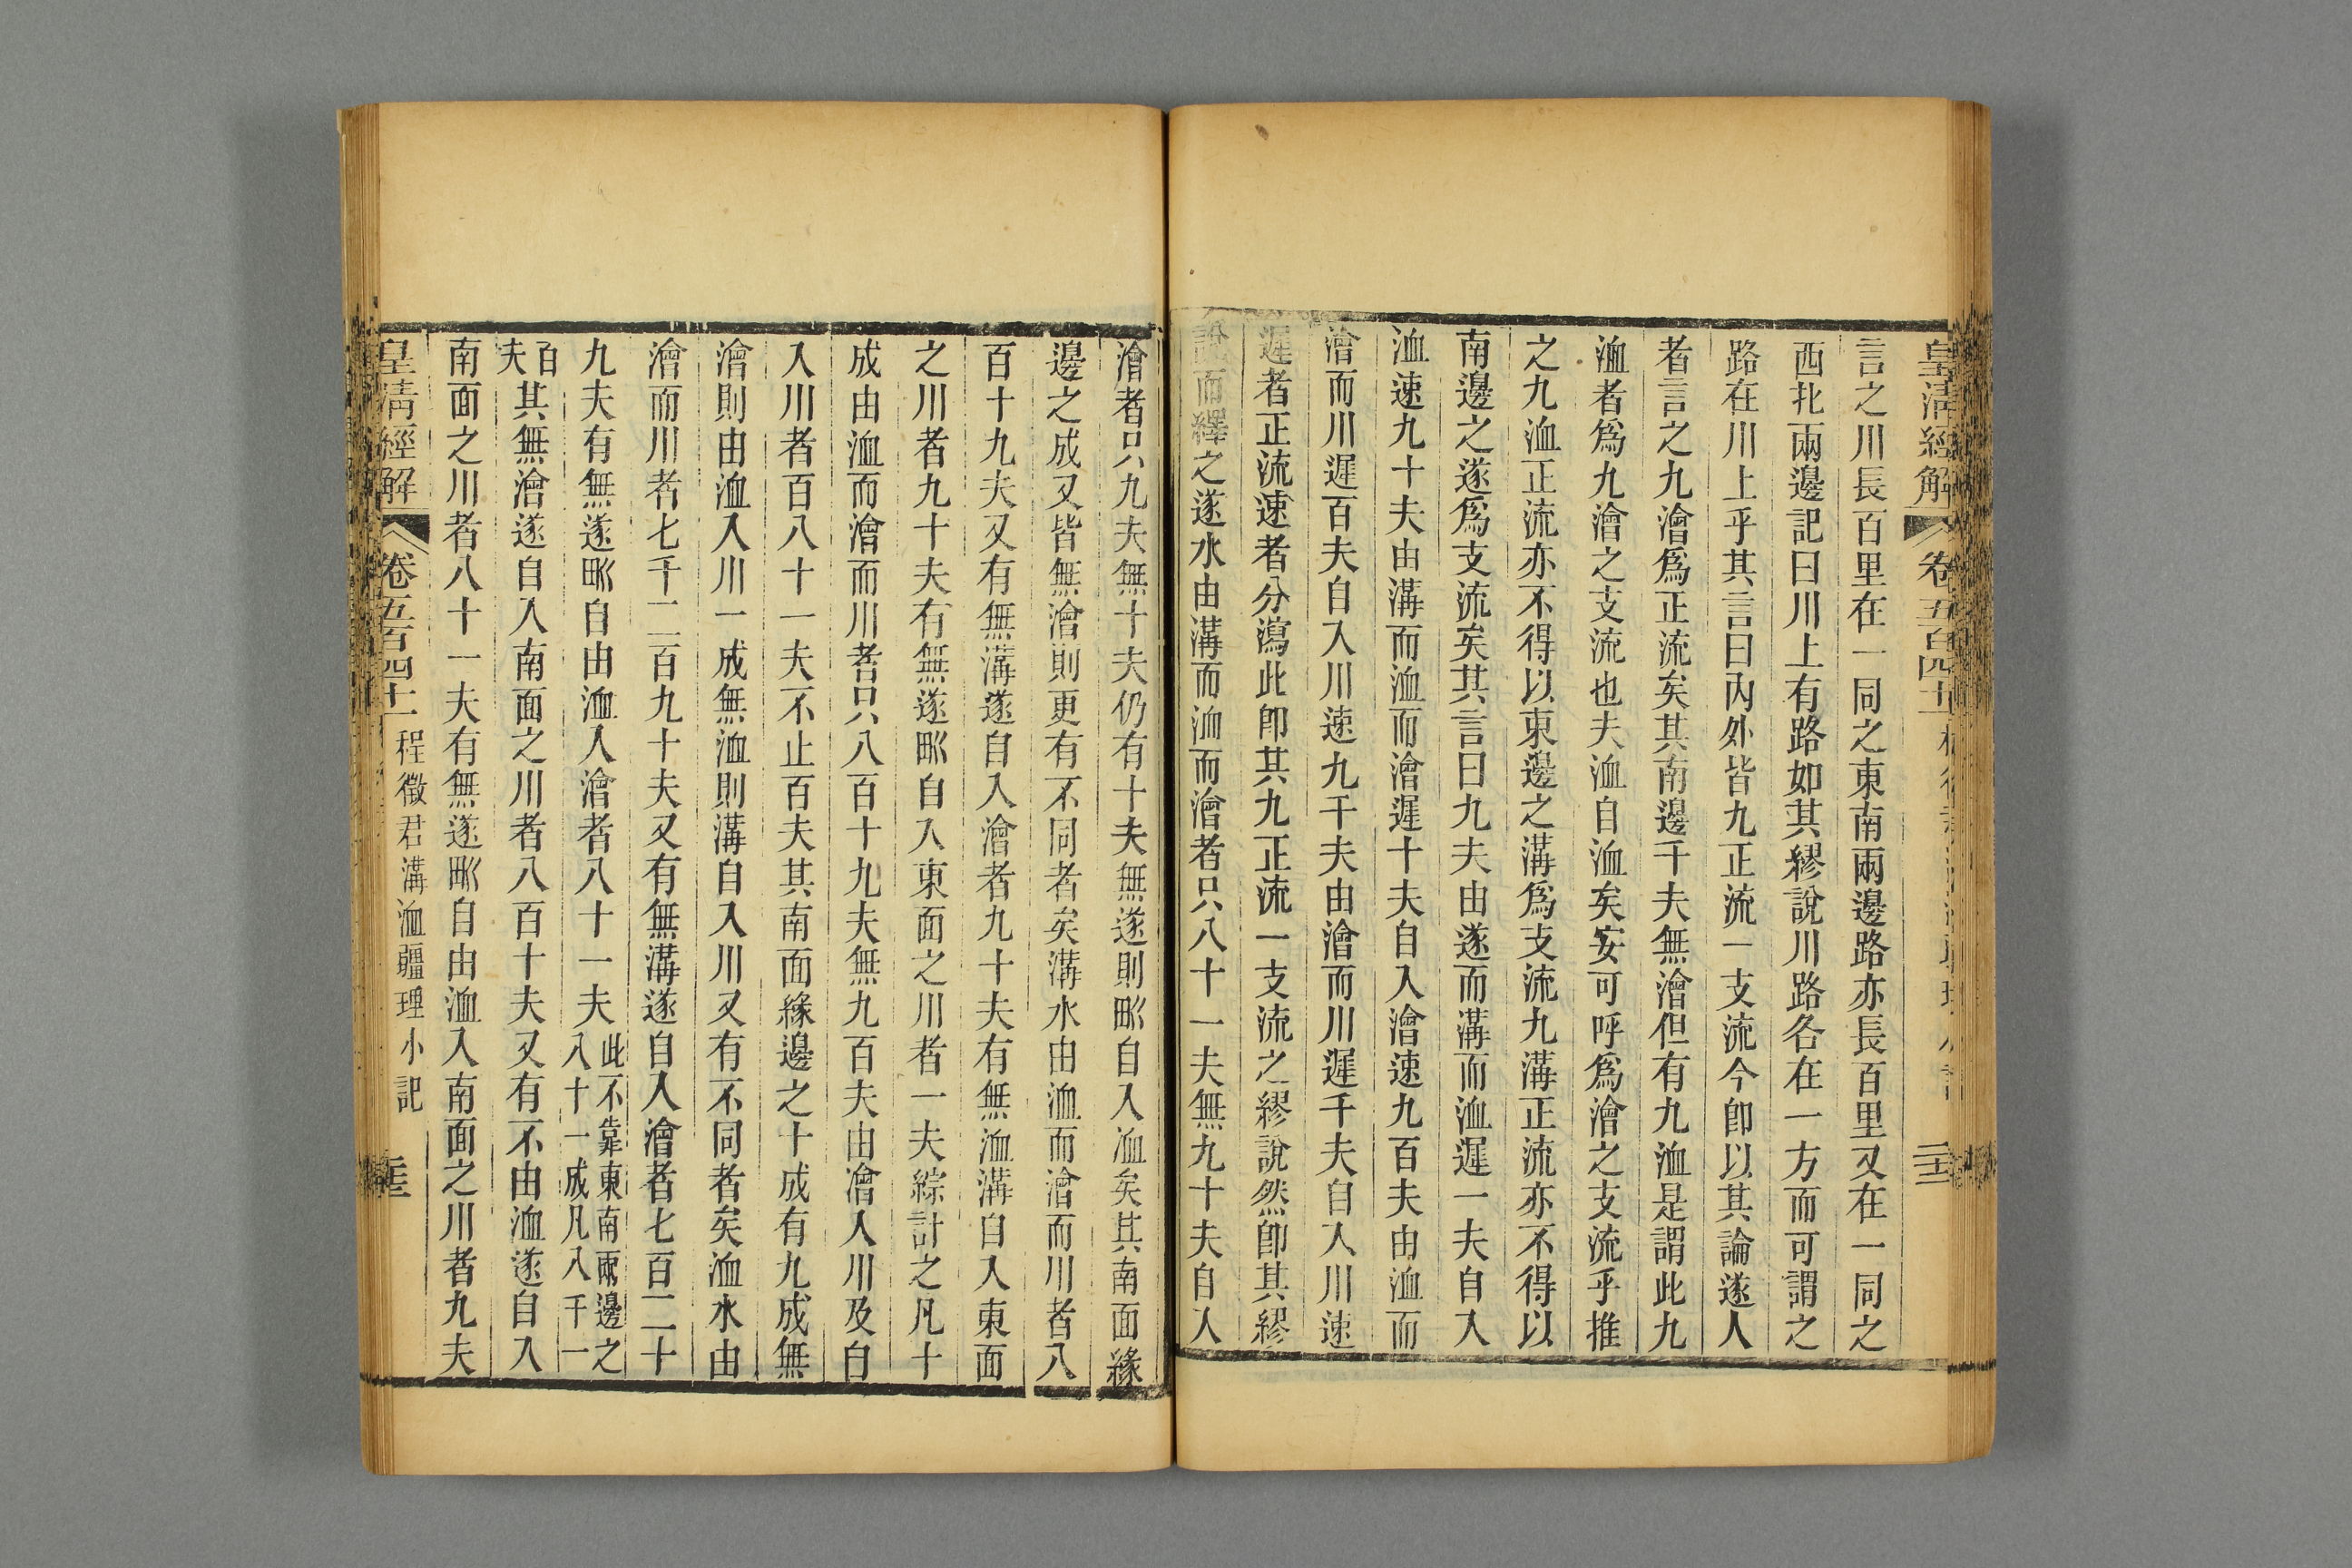 皇清經解 卷五百四十一
言之川長百里在一同之東南兩邊路亦長百里又在一同之
西北兩邊記曰川上有路如其繆說川路各在一方而可謂之
路在川上乎其言曰內外皆九正流一支流今卽以其論遂人
者言之九澮爲正流矣其南邊千夫無澮但有九洫是謂此九
洫者爲九澮之支流也夫洫自洫矣安可呼爲澮之支流乎推
之九洫正流亦不得以東邊之溝爲支流九溝正流亦不得以
南邊之遂爲支流矣其言曰九夫由遂而溝而洫遲一夫自入
洫速九十夫由溝而洫而澮遲十夫自入澮速九百夫由洫而
澮而川遲百夫自入川速九千夫由澮而川遲千夫自入川速
遲者正流速者分瀉此卽其九正流一支流之繆說然卽其繆
說而繹之遂水由溝而洫而澮者只八十一夫無九十夫自入
澮者只九夫無十夫仍有十夫無遂則甽自入洫矣其南面緣
邊之成又皆無澮則更有不同者矣溝水由洫而澮而川者八
百十九夫又有無溝遂自入澮者九十夫有無洫溝自入東面
之川者九十夫有無遂甽自入東面之川者一夫綜計之凡十
成由洫而澮而川者只八百十九夫無九百夫由澮入川及自
入川者百八十一夫不止百夫其南面緣邊之十成有九成無
澮則由洫入川一成無洫則溝自入川又有不同者矣洫水由
澮而川者七千二百九十夫又有無溝遂自入澮者七百二十
九夫有無遂甽自由洫入澮者八十一夫此不靠東南兩邊之八十一成凡八千一
百夫其無澮遂自入南面之川者八百十夫又有不由洫遂自入
南面之川者八十一夫有無遂甽自由洫入南面之川者九夫
皇清經解 卷五百四十一 程徵君溝洫疆理小記